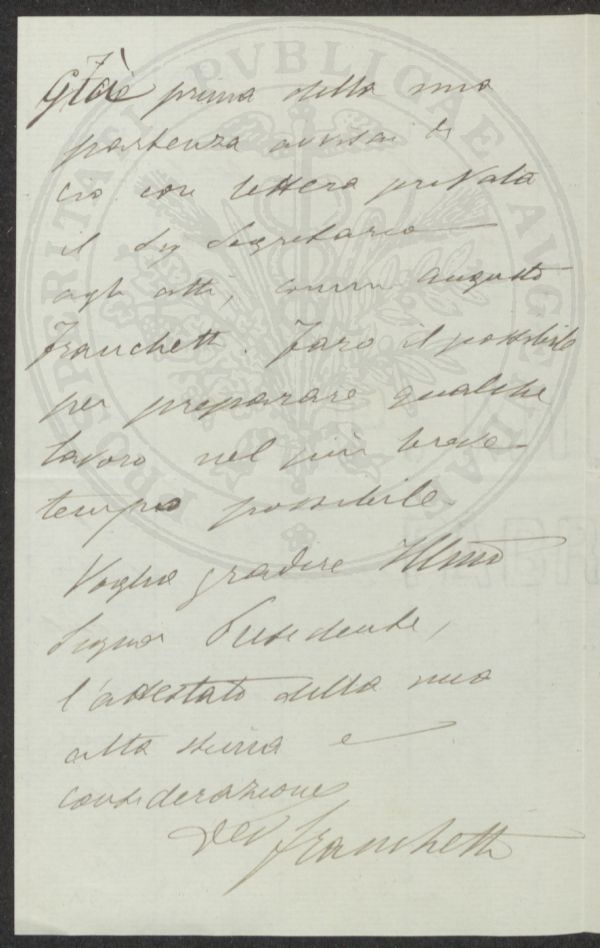 Già prima della mia
partenza avvisai di
ciò con lettera privata
il Sig Segretario
agli atti, comm Augusto
Franchetti. Farò il possibile
per preparare qualche
lavoro nel più breve
tempo possibile.
Voglia gradire Illmo
Signor Presidente,
l'attestato della mia
alta stima e
considerazione
Franchetti
PROSPERITATI PVBLICAE AVGENDAE